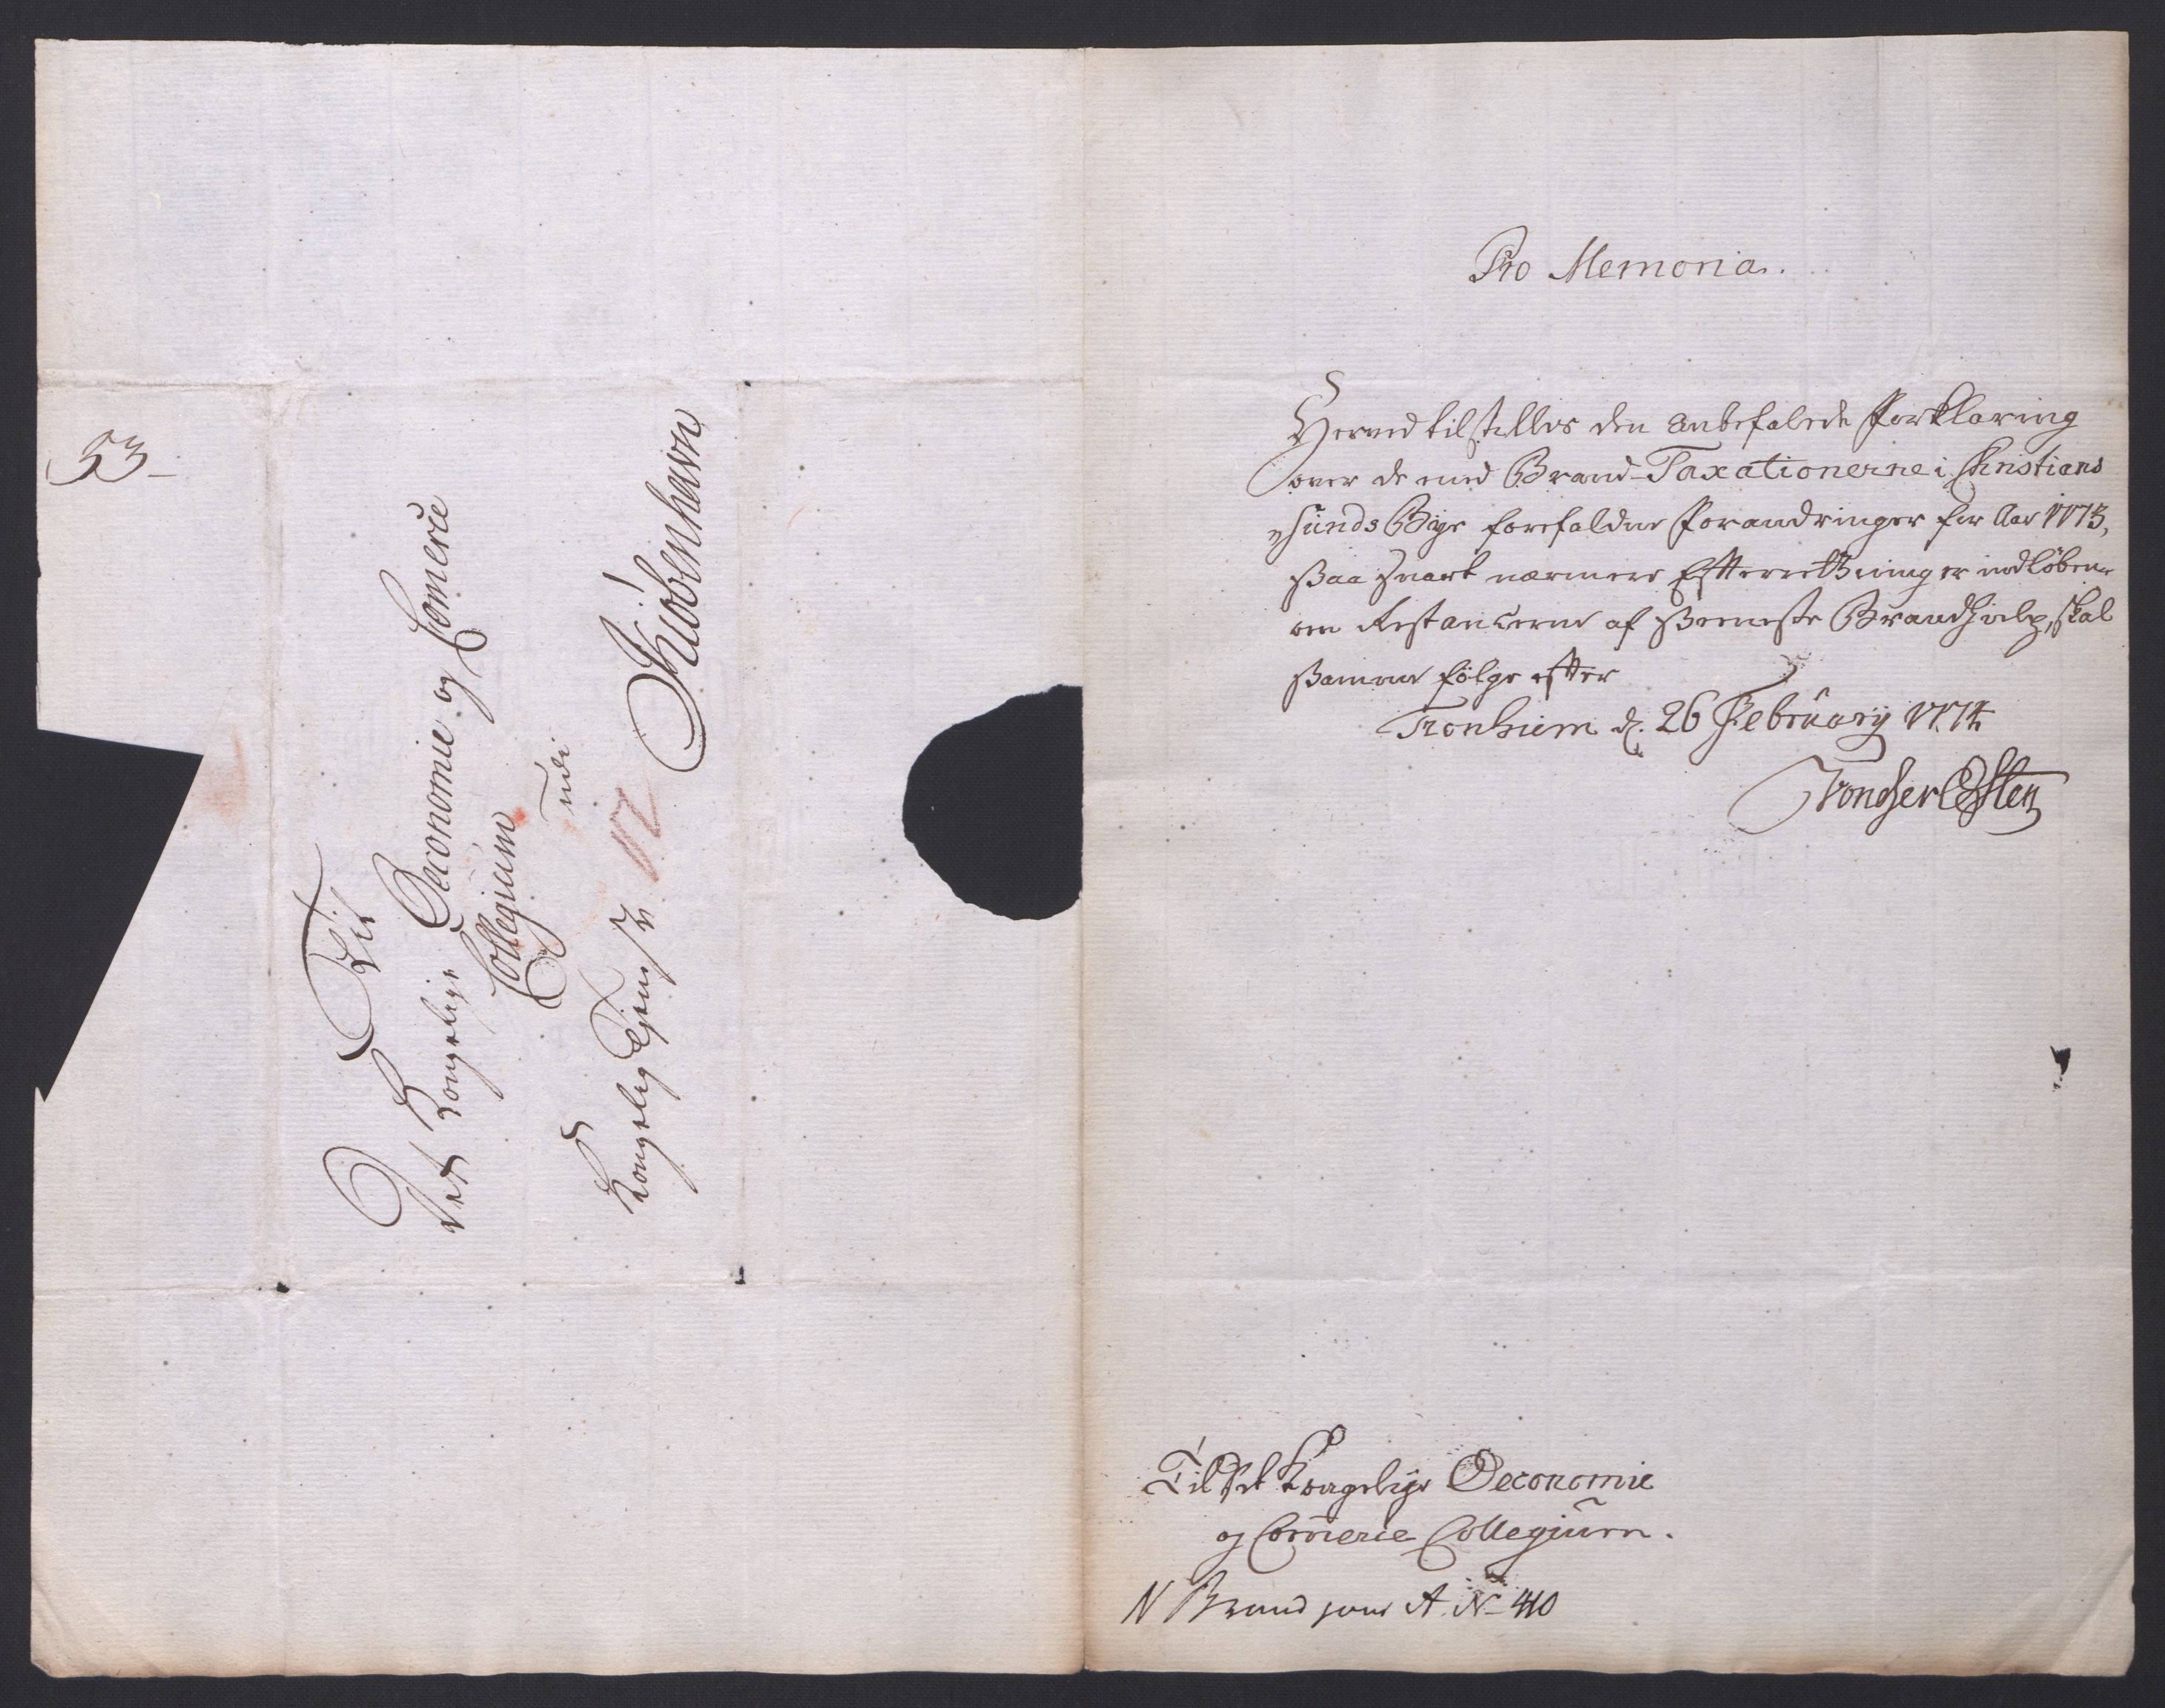 53
Til
Det Kongelige Oeconomie og Com̄erce
Collegium
udi
Kongelig Tjeneste
Kiöbenhavn
Pro Memoria.
Herved tilstilles den anbefalede Forklaring
over de med Brand-Taxationerne i Christians
sunds Bye forefaldne Forandringer for Aar 1773,
saa snart nærmere Efterretning er indløben
om Restancerne af seeneste Brandhielp, skal
samme følge efter
Tronhiem d. 26 February 1774
Von der Osten
Til Det Kongelige Oeconomie
og Com̄erce Collegium.
N Brand jour A. No 410